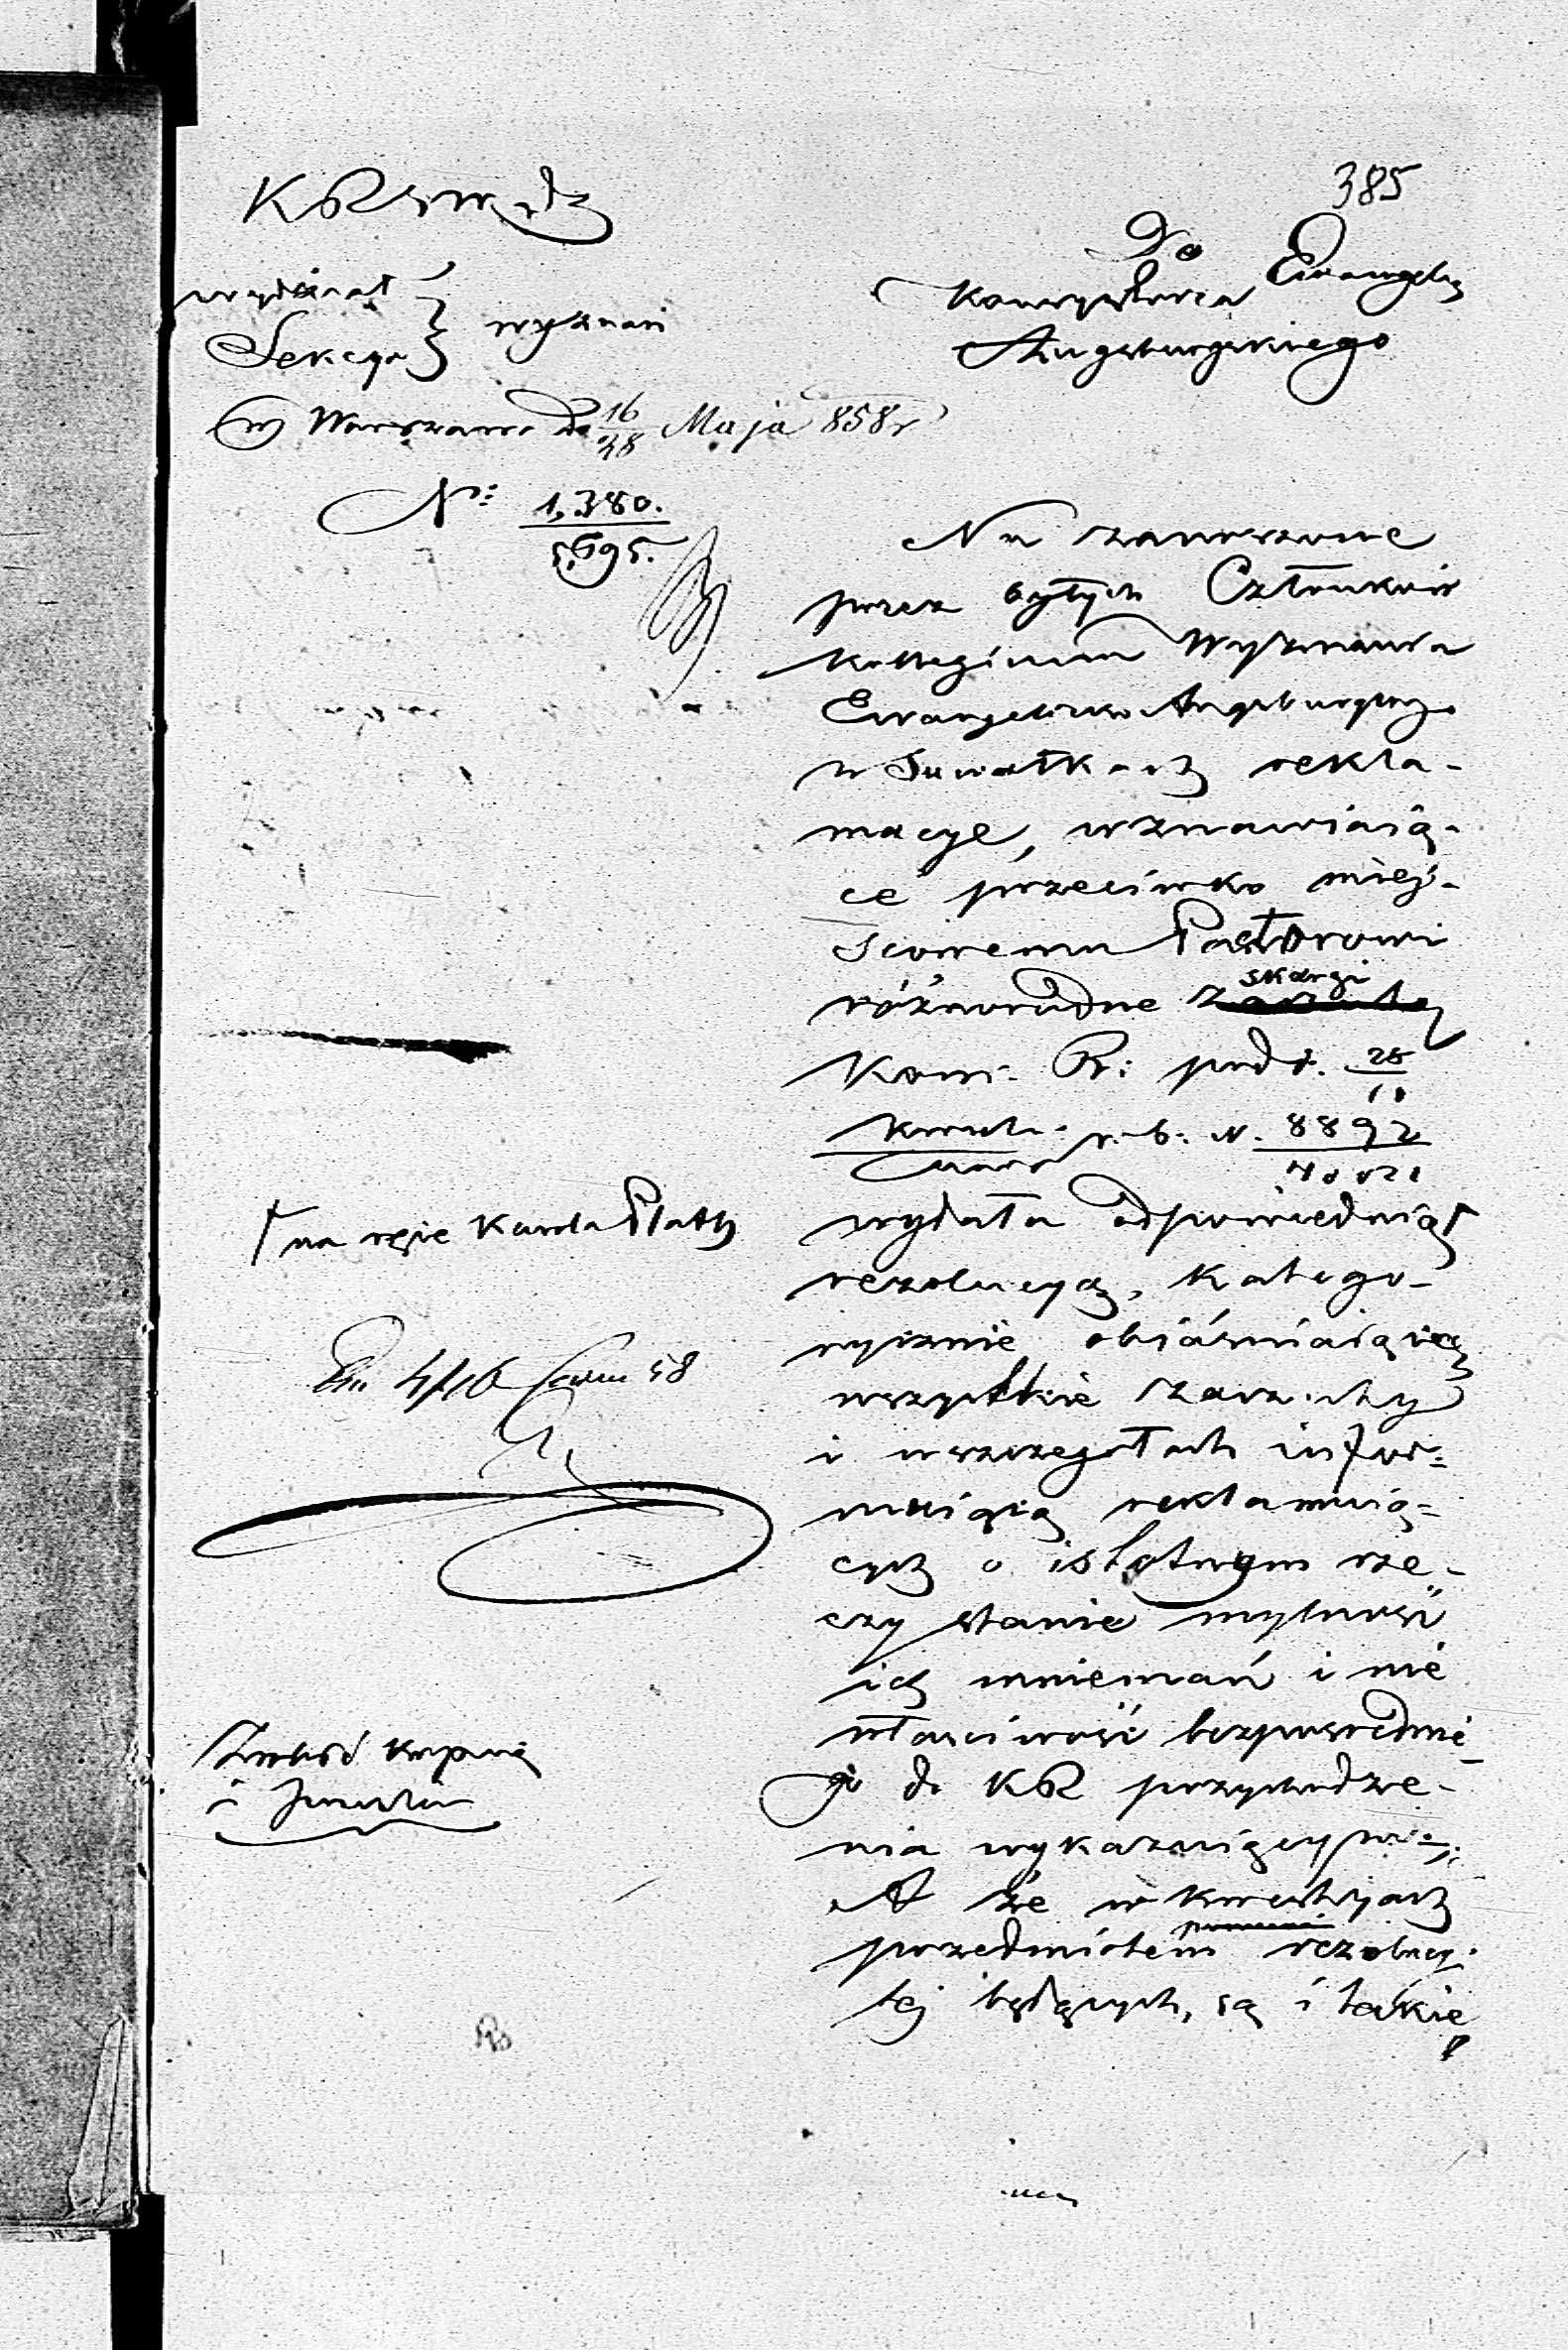 385
KRSWiD
Wydział
Sekcya
wyznań
w Warszawie d. 16/28 Maja 858 r
No: 1,380./5,695.
Do
Konsystorza Ewangelic
Augsburgskiego
Na zanoszone
przez byłych Członków
Kollegium Wyznania
Ewangelicko Augsburgskiego
w Suwałkach rekla-
macye, wznawiają-
ce przeciwko miej-
scowemu Pastorowi
różnorodne skargi
Kom. R: pod d. 28/
r. b. N. 8892/
wydała odpowiednią
na ręce Karola
rezolucyą, katego-
rycznie objaśniaiącą
wszystkie zarzuty
i w szczegółach infor-
muiącą reklamuią-
cych o istotnym rze-
czy stanie mylność
ich mniemań i nie
właściwość bezpośrednie
go do KR przychodze-
nia wykazuiącym.
A że w kwestyach
przedmiotem rezolucyi
tej będących, są i takie
58
kopią
i